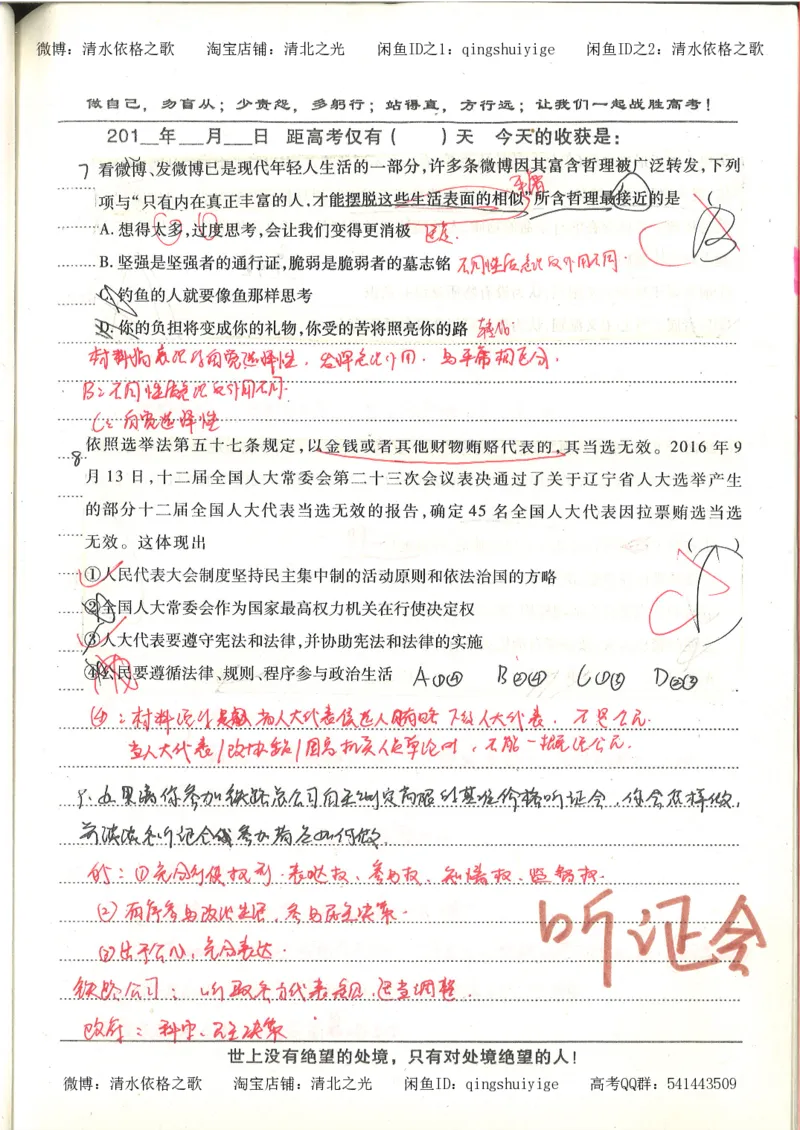 微博：清水依格之歌 淘宝店铺：清北之光 闲鱼ID之1：qingshuiyige 闲鱼ID之2：清水依格之歌
做自己，勿盲从；少责怨，多躬行；站得直，方行远；让我们一起战胜高考！
201__年___月___日 距高考仅有（ ）天 今天的收获是：
7 看微博、发微博已是现代年轻人生活的一部分，许多条微博因其富含哲理被广泛转发，下列
项与“只有内在真正丰富的人，才能摆脱这些生活表面的相似”所含哲理最接近的是 （ B ）
C
A. 想得太多，过度思考，会让我们变得更消极 过度.
B. 坚强是坚强者的通行证，脆弱是脆弱者的墓志铭 不同性质意识反作用不同.
C. 钓鱼的人就要像鱼那样思考
D. 你的负担将变成你的礼物，你受的苦将照亮你的路 转化.
B：不同性质意识反作用不同.
C：自觉选择性
8. 依照选举法第五十七条规定，以金钱或者其他财物贿赂代表的，其当选无效。2016 年 9
月 13 日，十二届全国人大常委会第二十三次会议表决通过了关于辽宁省人大选举产生
的部分十二届全国人大代表当选无效的报告，确定 45 名全国人大代表因拉票贿选当选
无效。这体现出 （ ）
C
①人民代表大会制度坚持民主集中制的活动原则和依法治国的方略
②全国人大常委会作为国家最高权力机关在行使决定权
③人大代表要遵守宪法和法律，并协助宪法和法律的实施
④公民要遵循法律、规则、程序参与政治生活 A①④ B②④ C①③ D②③
④：材料说的是 为人大代表候选人贿赂下级人大代表，不是公民.
当人大代表/政协委员/国家机关人员单论时，不能一概说公民.
9. 如果请你参加铁路总公司自主制定高服的基准价格听证会，你会怎样做，
并谈谈听证会参加者应如何做.
的：①充分行使权利.表达权、参与权、知情权、监督权.
②有序参与政治生活，参与民主决策.
③出于公心，充分表达.
铁路公司：听取各方代表意见，适当调整.
政府：科学、民主决策
听证会
世上没有绝望的处境，只有对处境绝望的人！
微博：清水依格之歌 淘宝店铺：清北之光 闲鱼ID：qingshuiyige 高考QQ群：541443509